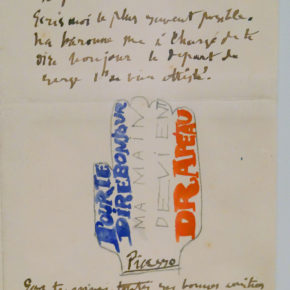 Ecris moi le plus souvent possible.
La baronne me à chargé de te
dire bonjour le départ du
serge l'a
POUR TE
DIRE BONJOUR
MA MAIN
DEVIENT
DRAPEAU
Picasso
toutes mes bonnes